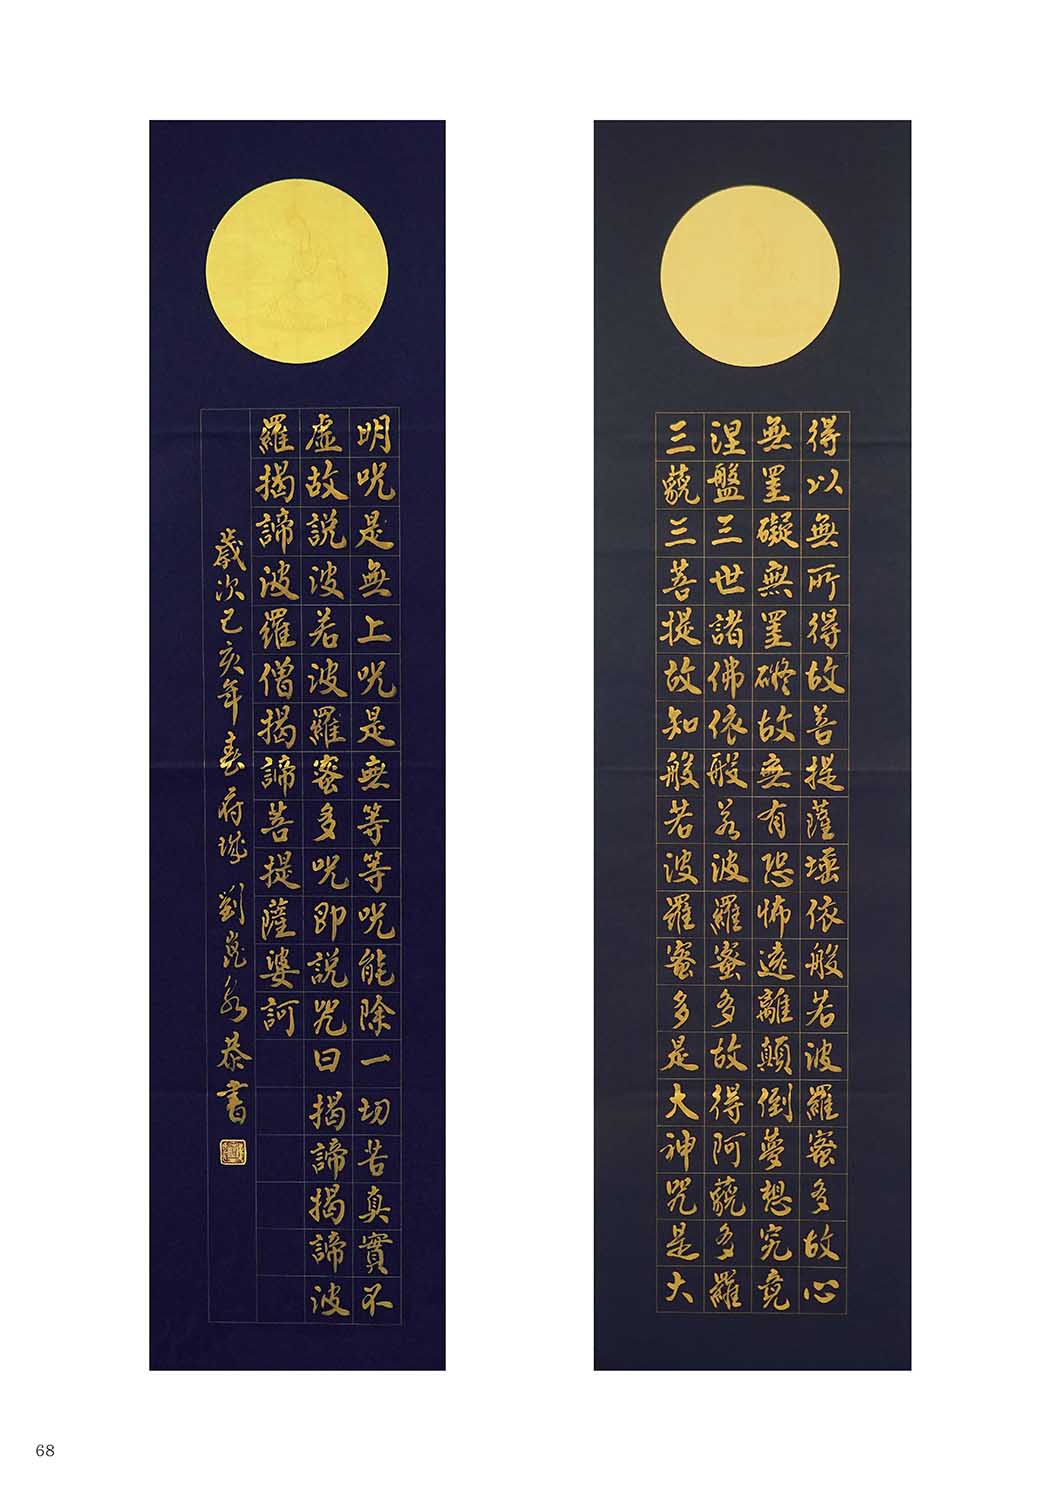 得以無所得故菩提薩埵依般若波羅蜜多故心
無罣礙無罣礙故無有恐怖遠離顛倒夢想究竟
涅盤三世諸佛依般若波羅蜜多故得阿藐多羅
三藐三菩提故知般若波羅蜜多是大神咒是大
明咒是無上咒是無等等咒能除一切苦真實不
虛故說波若波羅蜜多咒即說咒曰 揭諦揭諦波
羅揭諦波羅僧揭諦菩提薩婆訶
歲次己亥年春府城 劉 恭書
68